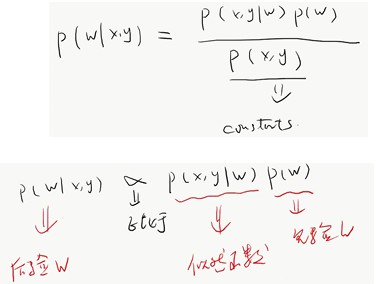 p(w|x,y) = p(x,y|w) p(w) / p(x,y)
⇓
constants.
p(w|x,y) ∝ p(x,y|w) p(w)
⇓ 正比于 ⇓ ⇓
后验w 似然函数 先验w